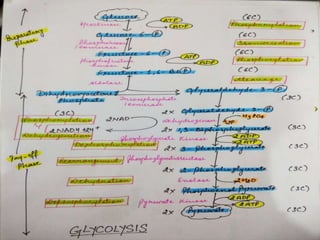 Glucose
(6C)
Hexokinase
ATP
ADP
Phosphorylation
Preparatory
Phase
Glucose-6-P
(6C)
Phosphohexose
isomerase
Isomerisation
Fructose-6-P
(6C)
Phosphofructo
kinase
ATP
ADP
Phosphorylation
Fructose-1,6-Bis P
(6C)
Aldolase
Cleavage
Dihydroxyacetone
Phosphate
Triosephosphate
isomerase
Glyceraldehyde-3-P
(3C)
2x Glyceraldehyde-3-P
(3C)
Phosphorylation
Dehydrogenation
2NAD
2NADH 2H+
Dehydrogenase
2x 1,3-Biphosphoglycerate
(3C)
Pay-off
Phase
Dephosphorylation
Phosphoglycerate Kinase
2ADP
2ATP
2x 3-Phosphoglycerate
(3C)
Rearrangement
Phosphoglyceromutase
2x 2-Phosphoglycerate
(3C)
Dehydration
Enolase
2H2O
2x Phosphoenol Pyruvate
(3C)
Dephosphorylation
Pyruvate Kinase
2ADP
2ATP
2x Pyruvate
(3C)
GLYCOLYSIS